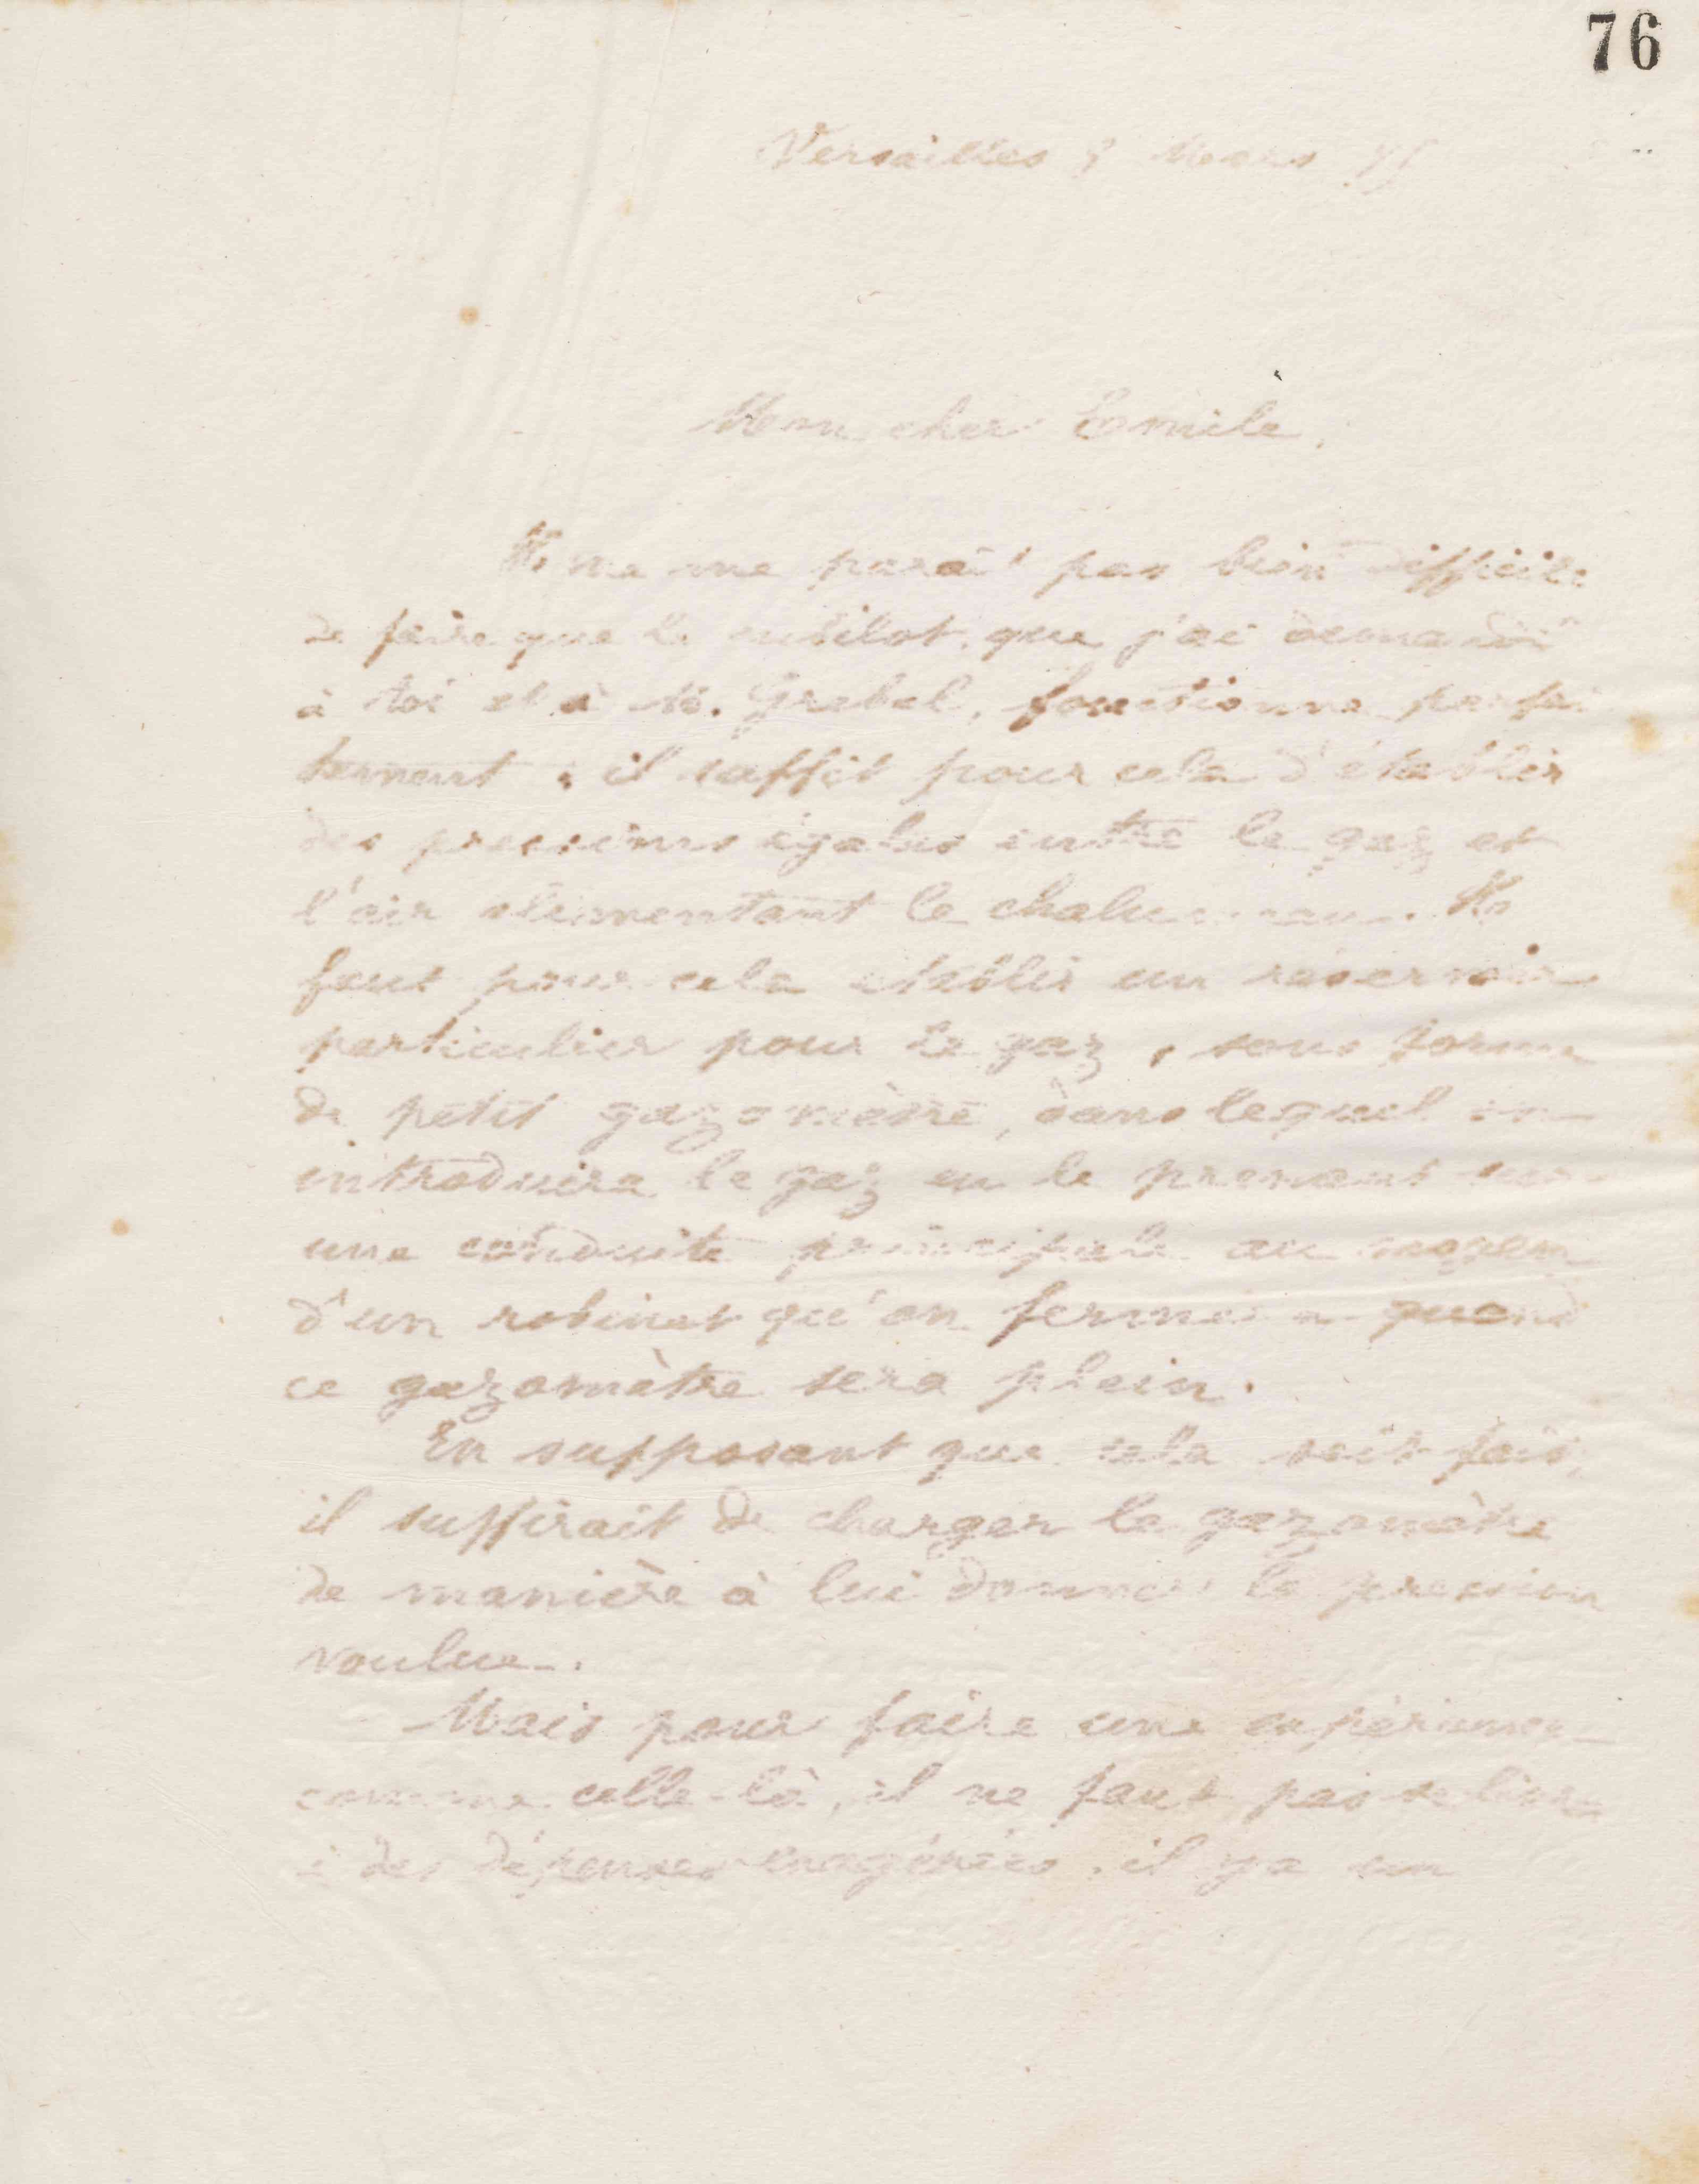 76
Versailles Mars
Mon cher Emile,
Il ne me paraît pas bien difficile
de faire que le cubilot que j'ai demandé
à toi et à M. Grebel, fonctionne parfai
tement ; il suffit pour cela d'établir
des pressions égales entre le gaz et
l'air alimentant le chalumeau. Il
faut pour cela établir un réservoir
particulier pour le gaz, sous forme
de petit gazomètre, dans lequel on
introduira le gaz en le prenant sur
une conduite principale au moyen
d'un robinet qu'on fermera quand
ce gazomètre sera plein.
En supposant que cela soit fait,
il suffirait de charger le gazomètre
de manière à lui donner la pression
voulue.
Mais pour faire une expérience
comme celle-là, il ne faut pas se livrer
à des dépenses exagérées. il y a un